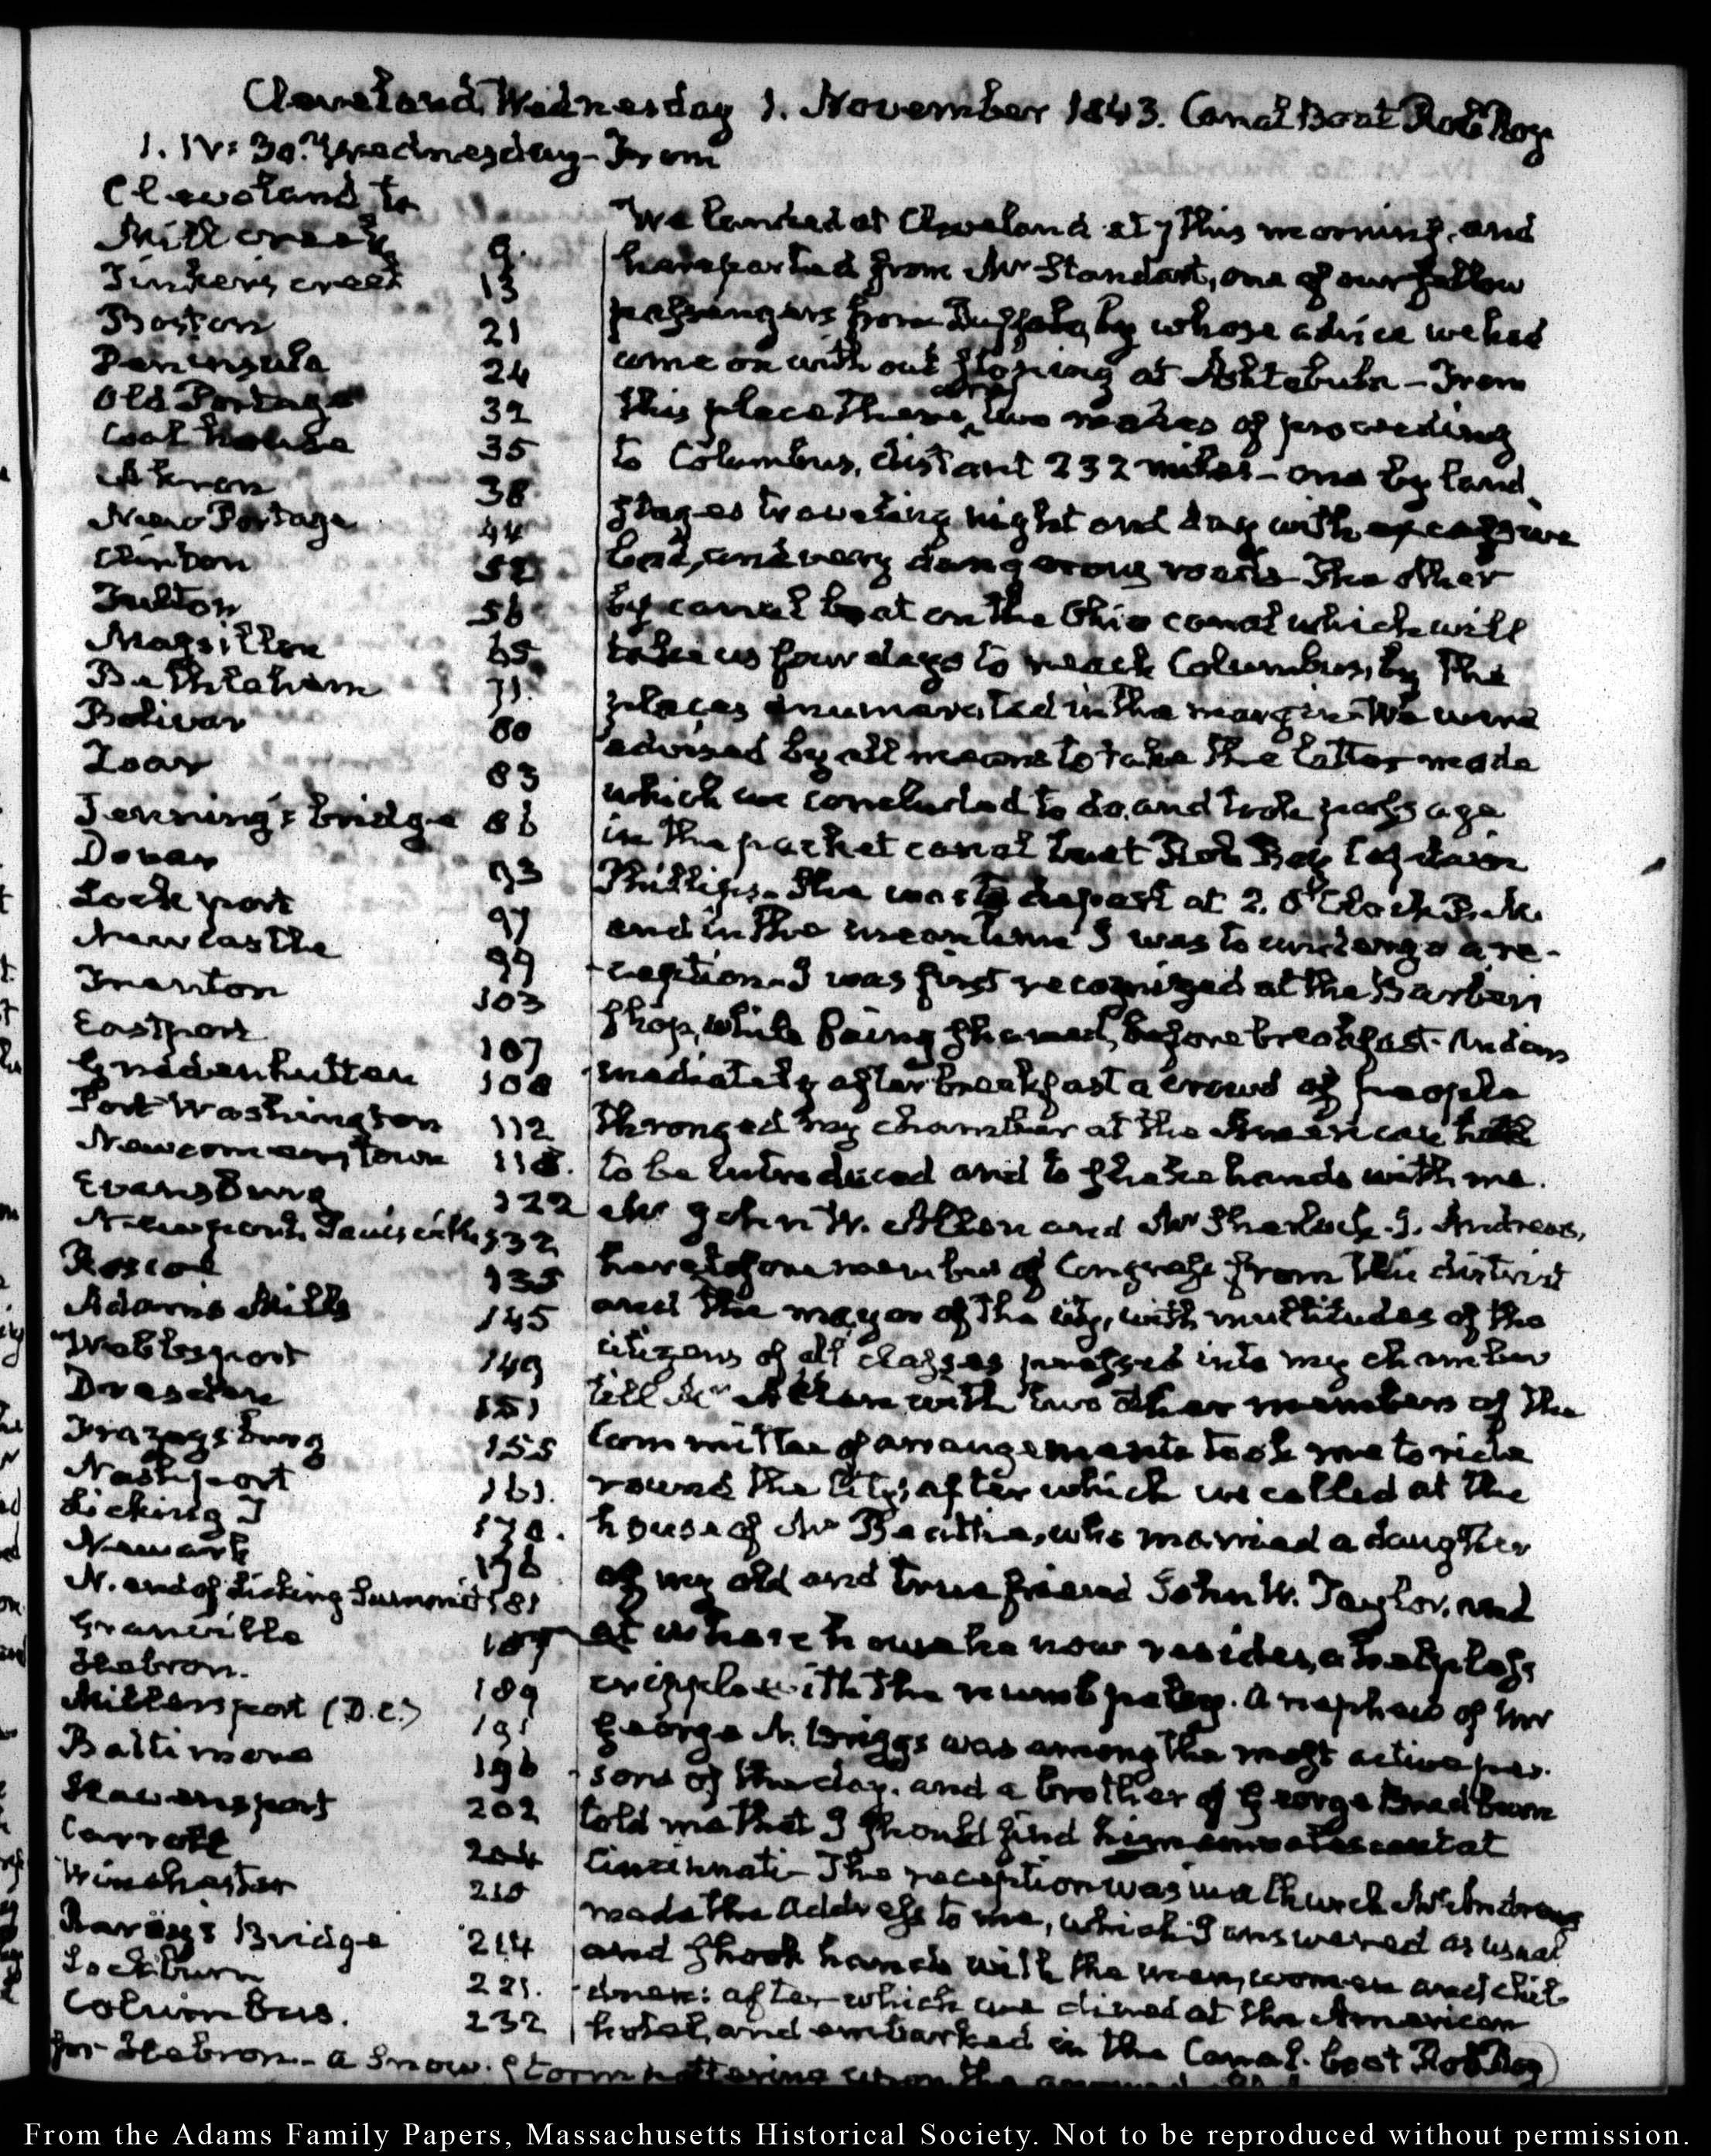 Cleveland Wednesday 1. November 1843. Canal Boat Rob Roy
1. IV: 30. Wednesday - From
Cleveland to
Mill creek 9.
Tinker's creek 13
Boston 21
Peninsula 24
Old Portage 32
Coal house 35
Akron 38
New Portage 44
Clinton 52
Fulton 56
Massillon 65
Bethlehem 71.
Bolivar 80
Zoar 83
Jenning's bridge 86
Dover 93
Lockport 97
Newcastle 99
Trenton 103
Eastport 107
Gnadenhutten 108
Port Washington 112
Newcomerstown 118.
Evansburg 122
Newport 132
Roscoe 135
Adams Mills 145
Webbsport 149
Dresden 151
Frazeysburg 155
Nashport 161.
Licking 170.
Newark 176
N. end of Licking Summit 181
Granville 187
Hebron. 189
Millersport (D.C.) 191
Baltimore 196
Havensport 202
Carroll 204
Winchester 210
Rarey's Bridge 214
Lockburn 221.
Columbus. 232
We landed at Cleveland at 7 this morning, and
here parted from Mr Standart, one of our fellow
passengers from Buffalo, by whose advice we had
come on without stopping at Ashtebula - From
this place there are two modes of proceeding
to Columbus, distant 232 miles - one by land
stages traveling night and day with excessive
bad, and very dangerous roads - The other
by canal boat on the Ohio canal which will
take us four days to reach Columbus, by the
places enumerated in the margin - We were
advised by all means to take the latter mode
which we concluded to do, and took passage
in the packet canal boat Rob Roy Captain
Phillips. She was to depart at 2. O'Clock P.M.
and in the meantime I was to undergo a re-
-ception. I was first recognized at the Barber's
shop, while being shaved, before breakfast. And im
mediately after breakfast a crowd of people
thronged my chamber at the American hotel
to be introduced and to shake hands with me.
Mr John W. Allen and Mr Sherlock J. Andrews,
heretofore members of Congress from this district
and the mayor of the city, with multitudes of the
citizens of all classes pressed into my chamber
till Mr Allen with two other members of the
Committee of arrangements took me to ride
round the City; after which we called at the
house of Mr Beattie, who married a daughter
of my old and true friend John W. Taylor, and
at whose house he now resides, a helpless
cripple with the numb palsey. A nephew of Mr
George N. Briggs was among the most active per-
-sons of the day. and a brother of George Bradburn
told me that I should find him at
Cincinnati - The reception was in a Church Mr Andrews
made the Address to me, which I answered as usual
and shook hands with the men, women and chil-
-dren: after which we dined at the American
hotel, and embarked in the Canal-boat Rob Roy
for Hebron - a Snow-Storm pattering upon the
From the Adams Family Papers, Massachusetts Historical Society. Not to be reproduced without permission.